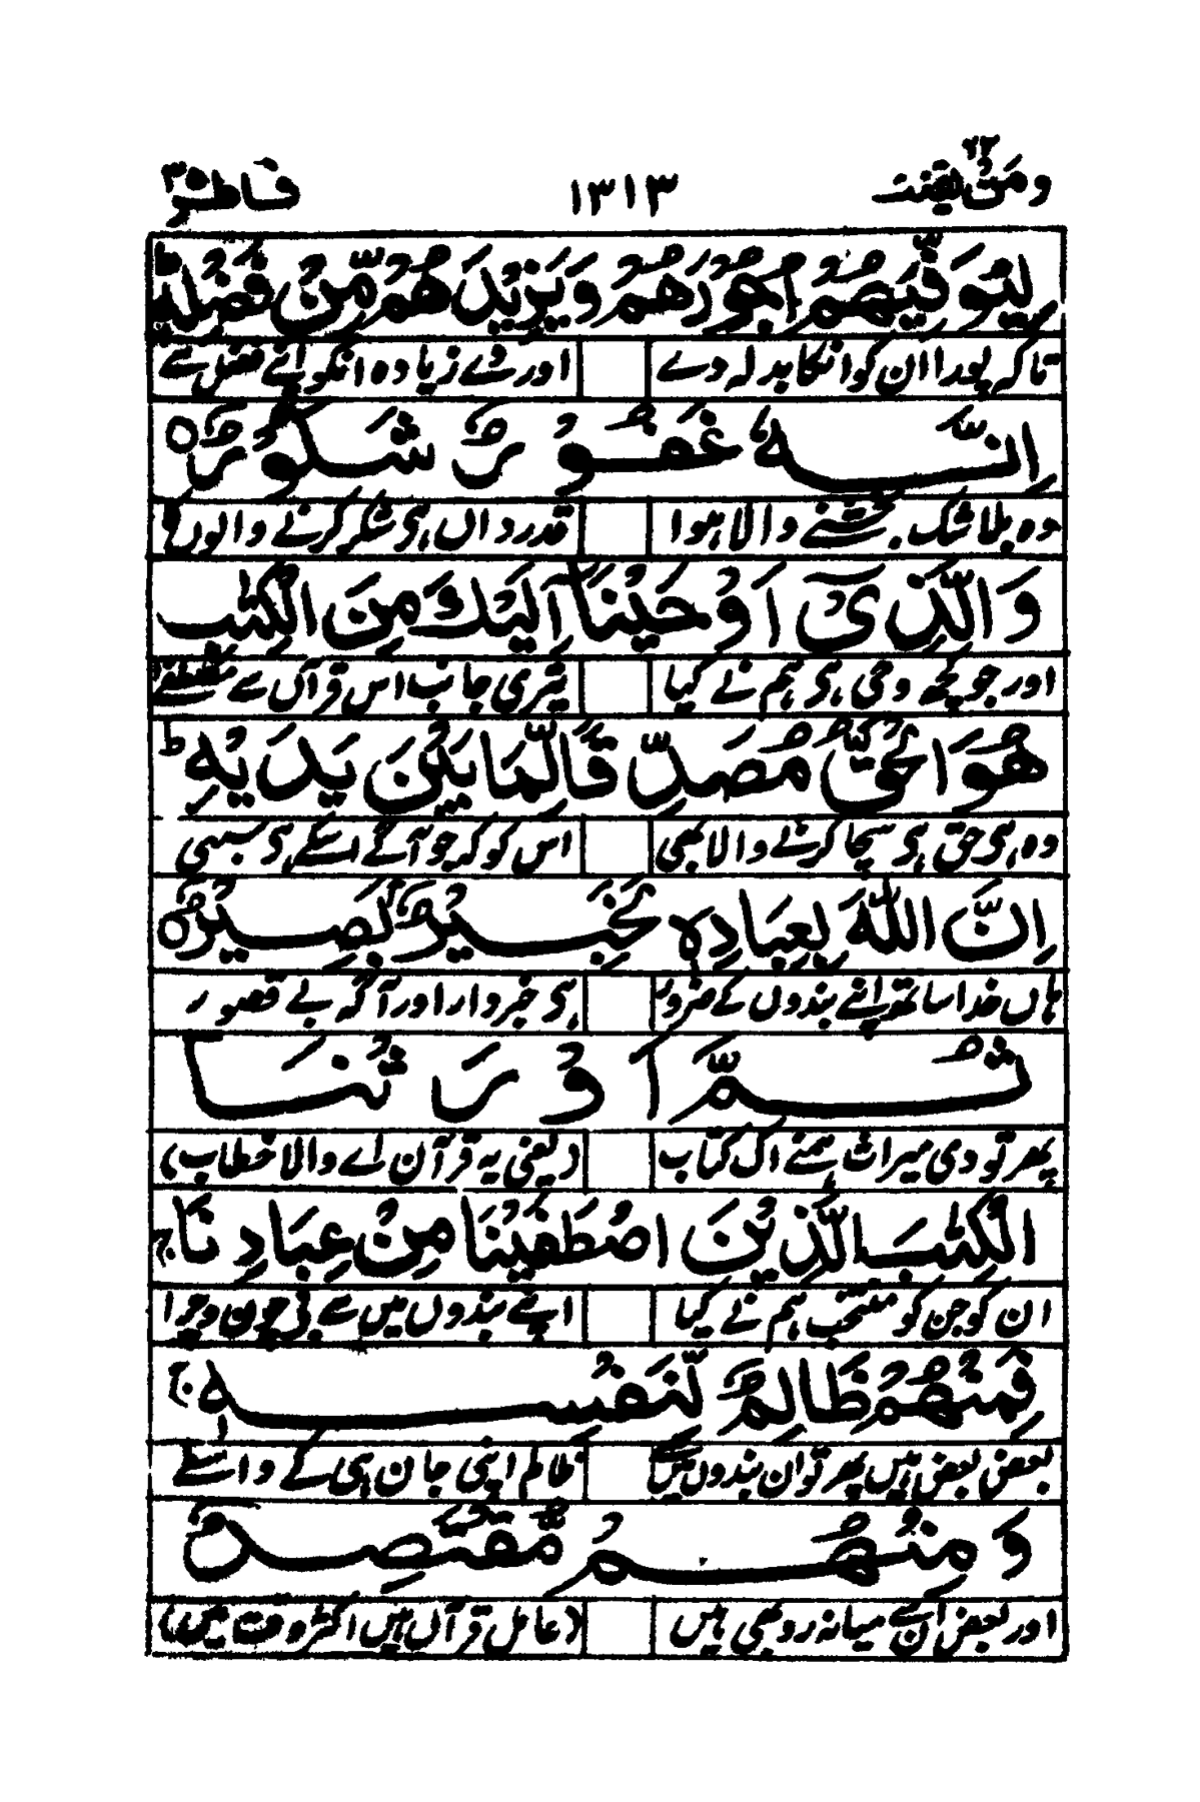 ومن يقنت ٢٢ ١٣١٣ فاطر ٣٥
لِيُوَفِّيَهُمْ اُجُوْرَهُمْ وَيَزِيْدَهُمْ مِّنْ فَضْلِهٖ ؕ
تاکہ پورا ان کو انکا بدلہ دے اور دے زیادہ انکو اپنے فضل سے
اِنَّهٗ غَفُوْرٌ شَكُوْرٌ ○
وہ بلا شک بخشنے والا ہوا قدرداں ہی شکر کرنے والوں کا
وَالَّذِیْۤ اَوْحَيْنَاۤ اِلَيْكَ مِنَ الْكِتٰبِ
اور جو کچھ وحی ہی ہم نے کیا تیری جانب اس قرآں سے
هُوَ الْحَقُّ مُصَدِّقًا لِّمَا بَيْنَ يَدَيْهِ ؕ
وہ ہی حق ہی سچا کرنے والا بھی اس کو کہ جو آگے اسکے ہی سبھی
اِنَّ اللّٰهَ بِعِبَادِهٖ لَخَبِيْرٌۢ بَصِيْرٌ ○
ہاں خدا ساتھ اپنے بندوں کے ضرور ہی خبردار اور آگہ بے قصور
ثُمَّ اَوْرَثْنَا
پھر تو دی میراث ہمنے اک کتاب (یعنی یہ قرآن اے والا خطاب)
الْكِتٰبَ الَّذِيْنَ اصْطَفَيْنَا مِنْ عِبَادِنَا ۚ
ان کو جن کو منتخب ہم نے کیا اپنے بندوں میں سے بے چون وچرا
فَمِنْهُمْ ظَالِمٌ لِّنَفْسِهٖ ۚ
بعض بعض ہیں پھر تو ان بندوں میں سے ظالم اپنی جان ہی کے واسطے
وَمِنْهُمْ مُّقْتَصِدٌ ۚ
اور بعض ان کے میانہ رو بھی ہیں (عامل قرآں ہیں اکثر وقت میں)